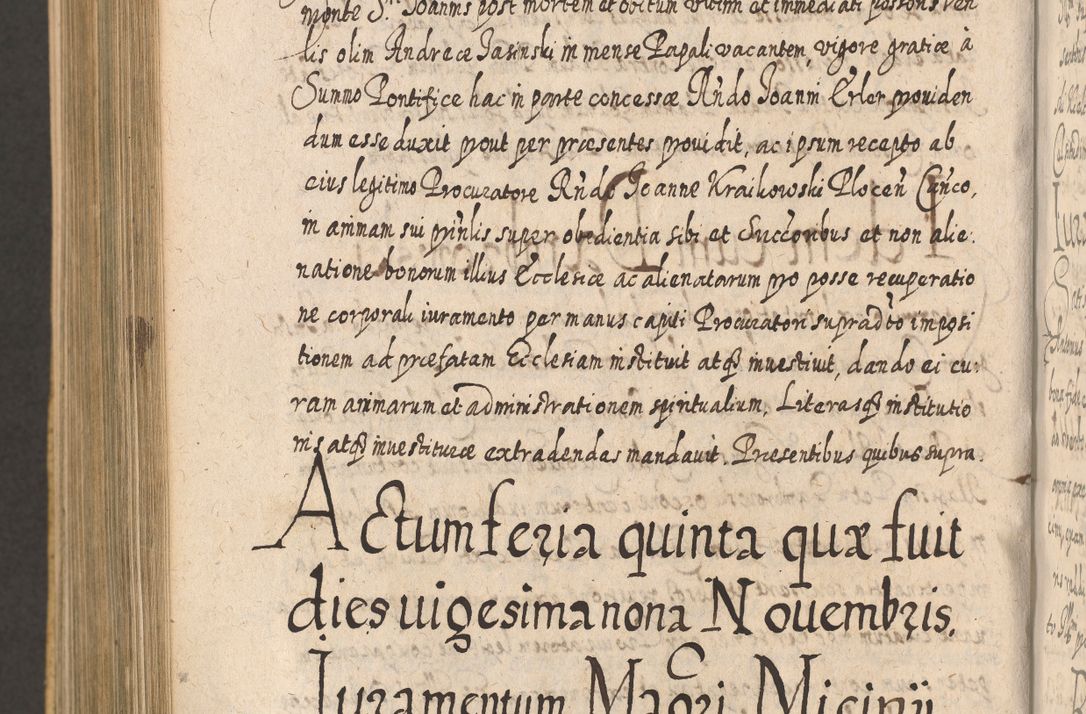 monte S. Joannis post mortem et obitum ultimi et immediati possoris ven
lis olim Andreæ Jasinski in mense Papali vacantem, vigore gratiæ à
Summo Pontifice hac in parte concessæ Rńdo Joanni Erler providen
dum esse duxit prout per præsentes providit, ac ipsum recepto ab
eius legitimo Procuratore Rńdo Joanne Kraikowski Plocen̄ Cańco,
in animam sui prińlis super obedientia sibi et Succ̄oribus et non alie:
natione bonorum illius Ecclesiæ ac alienatarum pro posse recuperatio
ne corporali iuramento per manus capiti Procuratori supradc̄to imposi
tionem ad præfatam Ecclesiam instituit atq́ investiuit, dando ei cu:
ram animarum et administrationem spiritualium, Literasq́ institutio
nis atq́ investituræ extradendas mandauit. Præsentibus quibus supra.
Actum feria quinta quæ fuit
dies uigesima nona Nouembris.
Iuramentum Magri Micinij